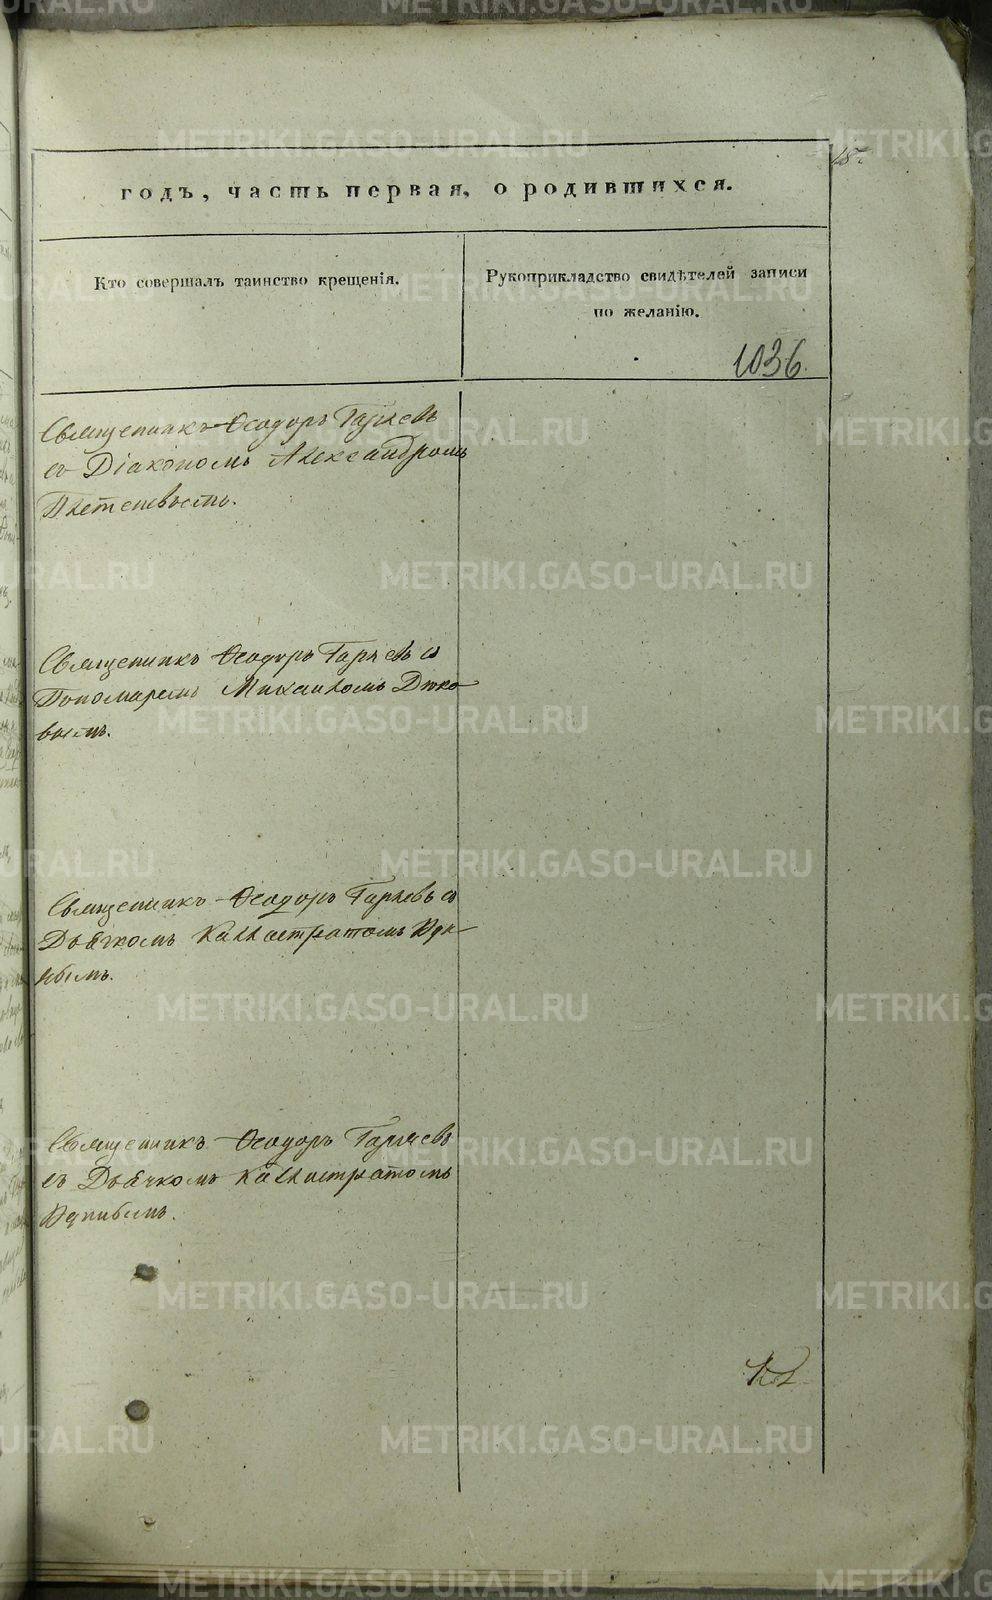 18.
годъ, часть первая, о родившихся.
Кто совершалъ таинство крещенія.
Рукоприкладство свидѣтелей записи
по желанію.
1036.
Священникъ Ѳеодоръ Гаряевъ
съ Діакономъ Александромъ
Плетеневымъ.
Священникъ Ѳеодоръ Гаряевъ съ
Пономаремъ Михаиломъ Дюко-
вымъ.
Священникъ Ѳеодоръ Гаряевъ съ
Дьячкомъ Каллистратомъ
Священникъ Ѳеодоръ Гаряевъ
съ Дьячкомъ Каллистратомъ
METRIKI.GASO-URAL.RU